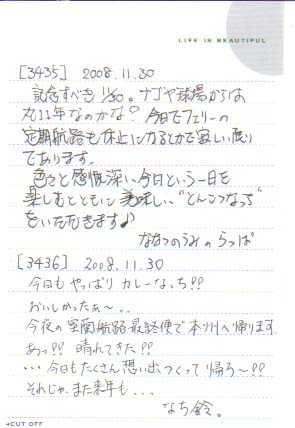 LIFE IS BEAUTIFUL
[3435] 2008.11.30
記念すべき 11/30。ナゴヤ球場からは
丸11年なのかな? 今日でフェリーの
定期航路も休止になるとかで寂しい限り
であります。
色々と感慨深い今日という一日を
楽しむとともに美味しい、"とんこつなっち"
をいただきます♪
ななつのうみのらっぱ
[3436] 2008.11.30
今日もやっぱりカレーなっち!!
おいしかったぁ〜..
今夜の室蘭航路最終便で本州へ帰ります
あっ!! 晴れてきた!!
...今日もたくさん想い出つくって帰ろ〜!!
それじゃ、また来年も...
なち鈴。
◂CUT OFF